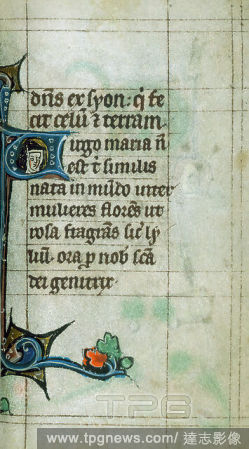 dn̄s ex syon: q̄ fe
cit celū ⁊ terram
Virgo maria n̄
est t̄ similis
nata in mūdo inter
mulieres florēs ut
rosa fragrās sic̄ ly
liū. ora p nob̄ scā
dei genitrix.
TPG
www.tpgnews.com/達志影像